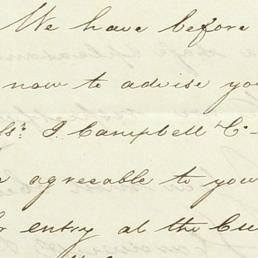 We have before
now to advise you
J. Campbell & Co
agreeable to you
entry at the Cu